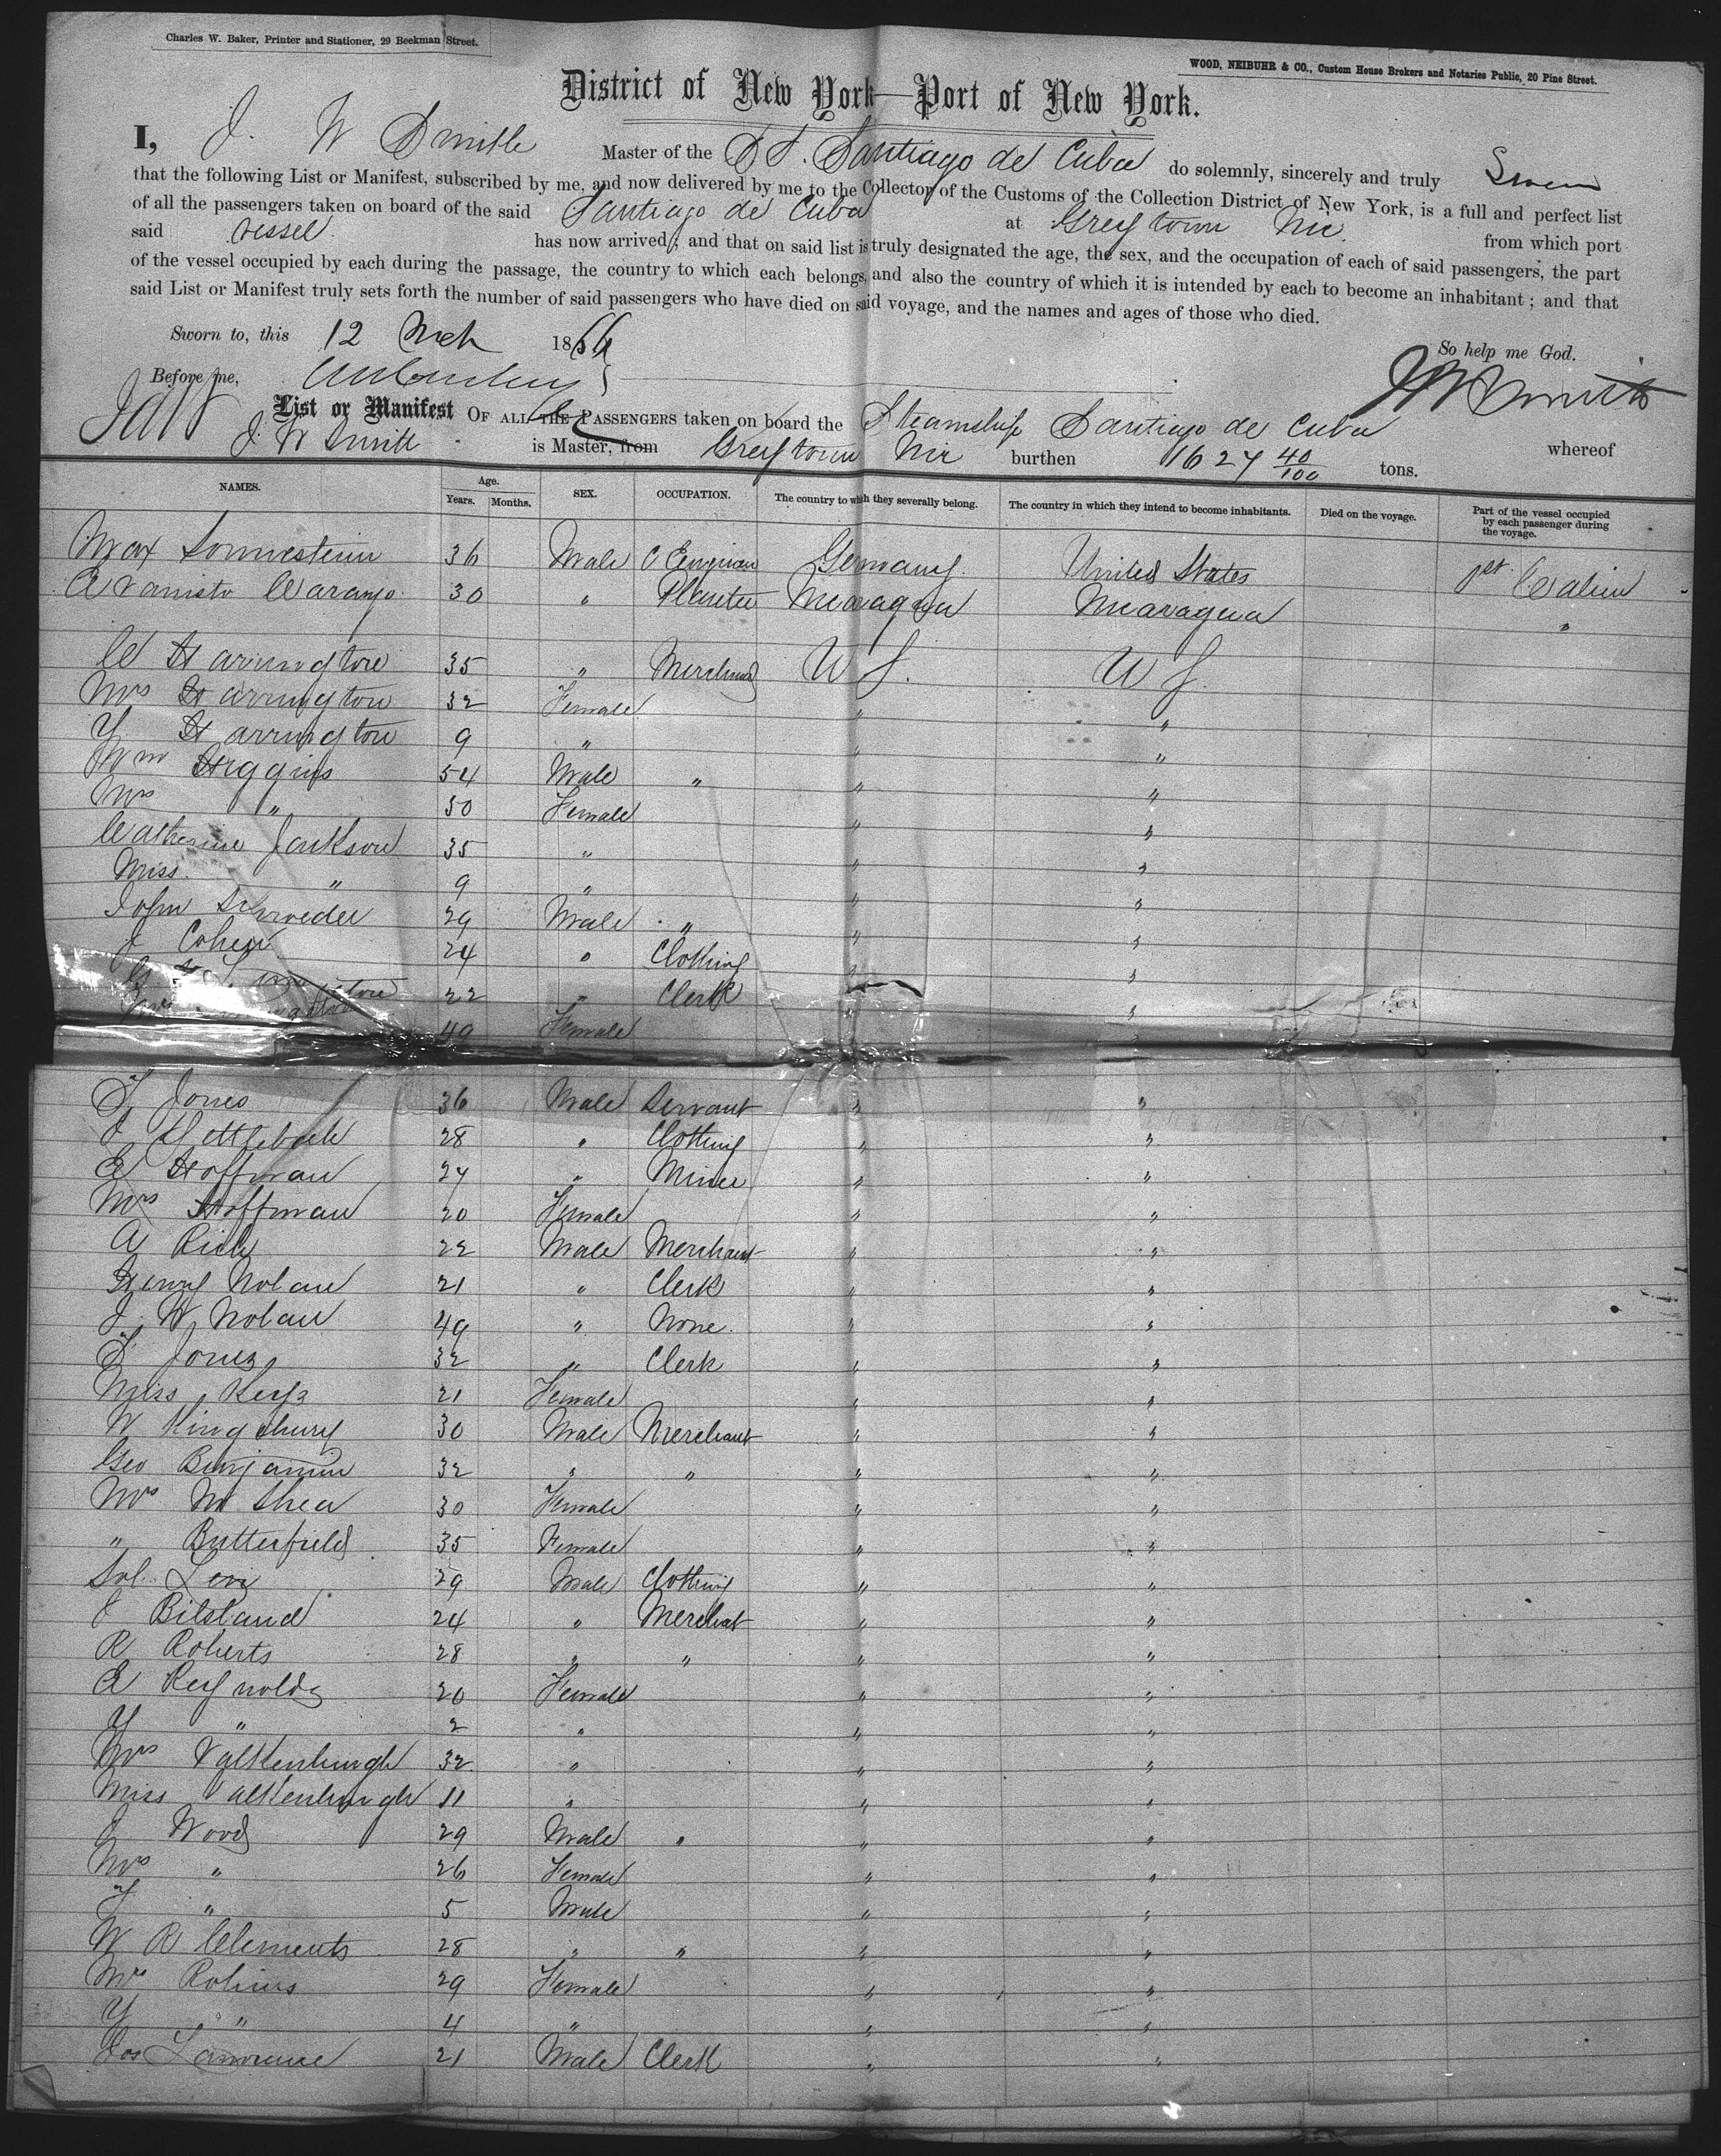 Charles W. Baker, Printer and Stationer, 29 Beekman Street.
WOOD, NEIBUHR & CO., Custom House Brokers and Notaries Public, 20 Pine Street.
District of New York—Port of New York.
I, J. W Smith Master of the S S. Santiago de Cuba do solemnly, sincerely and truly Swear
that the following List or Manifest, subscribed by me, and now delivered by me to the Collector of the Customs of the Collection District of New York, is a full and perfect list
of all the passengers taken on board of the said Santiago de Cuba at Greytown Nic. from which port
said Vessel has now arrived; and that on said list is truly designated the age, the sex, and the occupation of each of said passengers, the part
of the vessel occupied by each during the passage, the country to which each belongs, and also the country of which it is intended by each to become an inhabitant; and that
said List or Manifest truly sets forth the number of said passengers who have died on said voyage, and the names and ages of those who died.
Sworn to, this 12 Mch 1866
So help me God.
Before me,
J W Smith
List or Manifest OF ALL THE PASSENGERS taken on board the Steamship Santiago de Cuba whereof
J. W Smith is Master, from Greytown Nic burthen 1627 40/100 tons.
NAMES. Age. Years. Months. SEX. OCCUPATION. The country to which they severally belong. The country in which they intend to become inhabitants. Died on the voyage. Part of the vessel occupied by each passenger during the voyage.
Max 36 Male Germany United States 1st Cabin
30 " Planter Nicaragua Nicaragua "
C Harrington 35 " Merchant U S. U S.
Mrs Harrington 32 Female " "
Y Harrington 9 " " "
Wm Higgins 54 Male " " "
Mrs " 50 Female " "
Catherine Jackson 35 " " "
Miss " 9 " " "
John Schroeder 29 Male " " "
J Cohen 24 " Clothing " "
22 " Clerk " "
Mrs 49 Female " "
F Jones 36 Male Servant " "
J 28 " Clothing " "
E Hoffman 24 " Miner " "
Mrs Hoffman 20 Female " "
A Rich 22 Male Merchant " "
Henry Nolan 21 " Clerk " "
J. W Nolan 49 " None " "
F Jones 32 " Clerk " "
Miss Keys 21 Female " "
W Kingsbury 30 Male Merchant " "
Geo Benjamin 32 " " " "
Mrs M Shea 30 Female " "
" Butterfield 35 Female " "
Sol. Levy 29 Male Clothing " "
J Bilsland 24 " Merchat " "
R Roberts 28 " " " "
E Reynolds 20 Female " "
Y " 2 " " "
Mrs Valkenburgh 32 " " "
Miss Valkenburgh 11 " " "
J Wood 29 Male " " "
Mrs " 26 Female " "
F " 5 Male " "
W R Clements 28 " " " "
Mrs Robins 29 Female " "
Y " 4 " " "
Jos Lawrence 21 Male Clerk " "